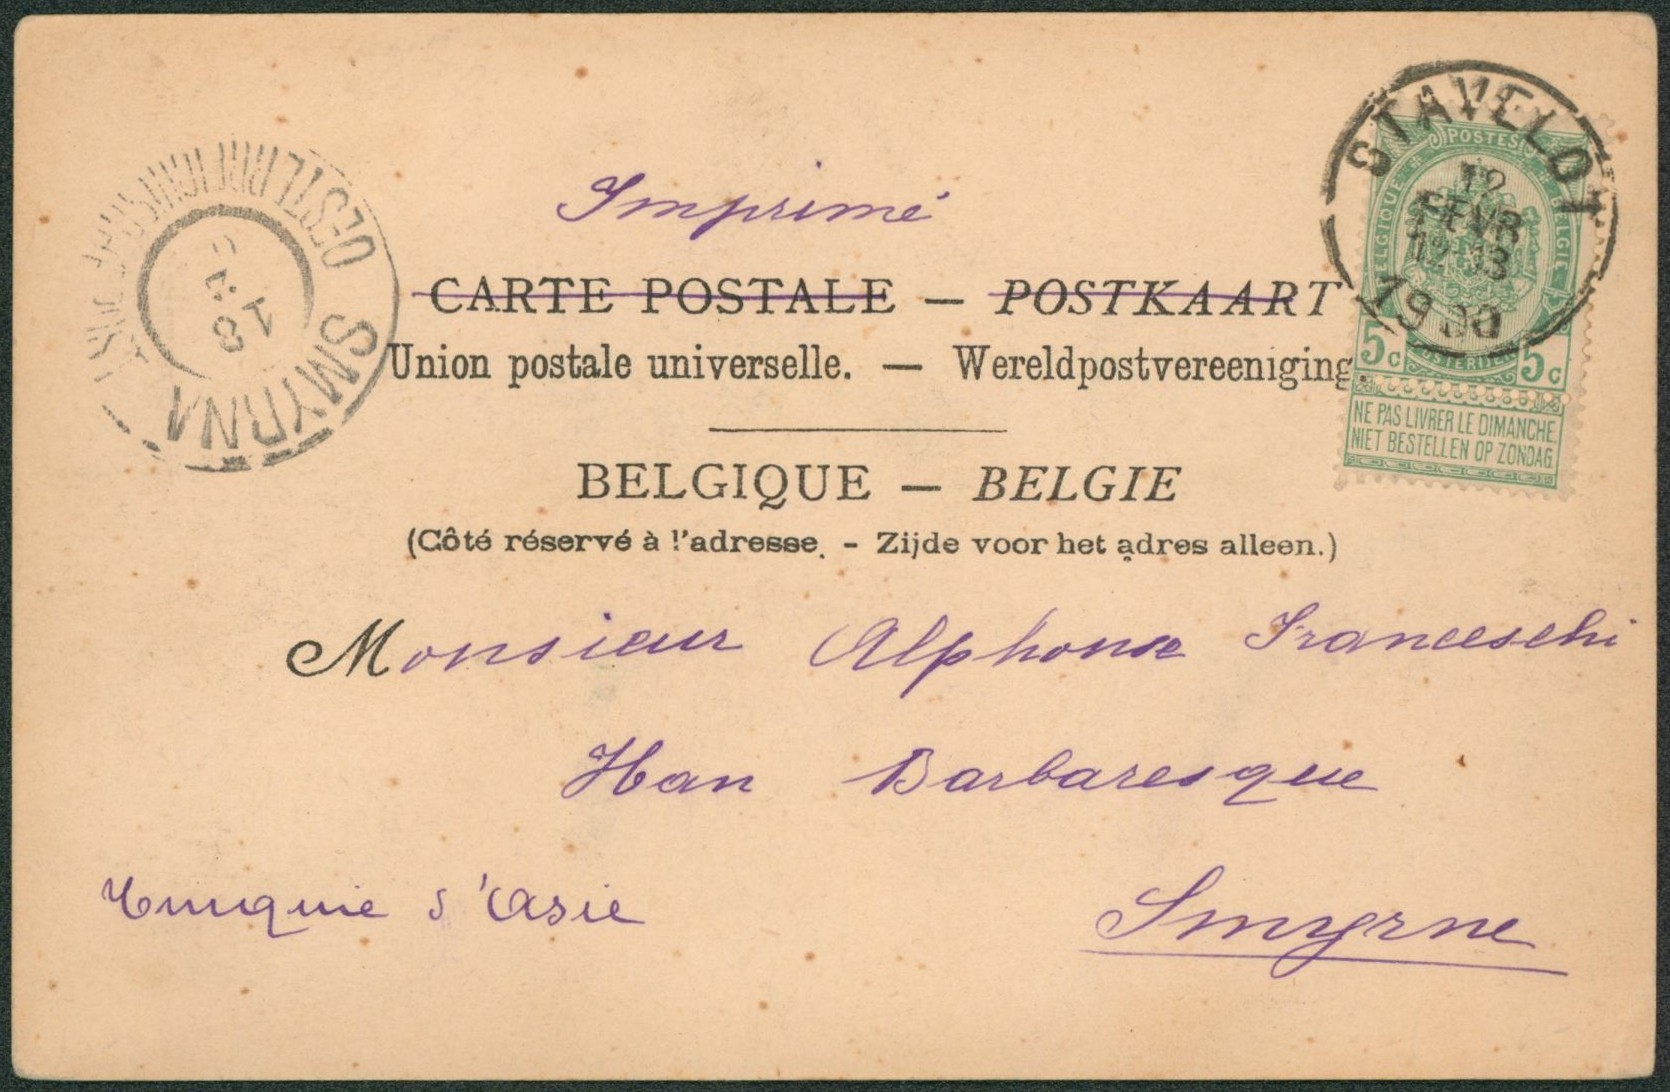 Imprimé
CARTE POSTALE — POSTKAART
Union postale universelle. — Wereldpostvereeniging.
BELGIQUE — BELGIE
(Côté réservé à l'adresse. - Zijde voor het adres alleen.)
Monsieur Alphonse Franceschi
Han Barbaresque
Smyrne
Turquie d'Asie
STAVELOT
12
FEVR
12-13
1900
POSTES
BELGIQUE BELGIE
5c 5c
NE PAS LIVRER LE DIMANCHE
NIET BESTELLEN OP ZONDAG
SMYRNA
18